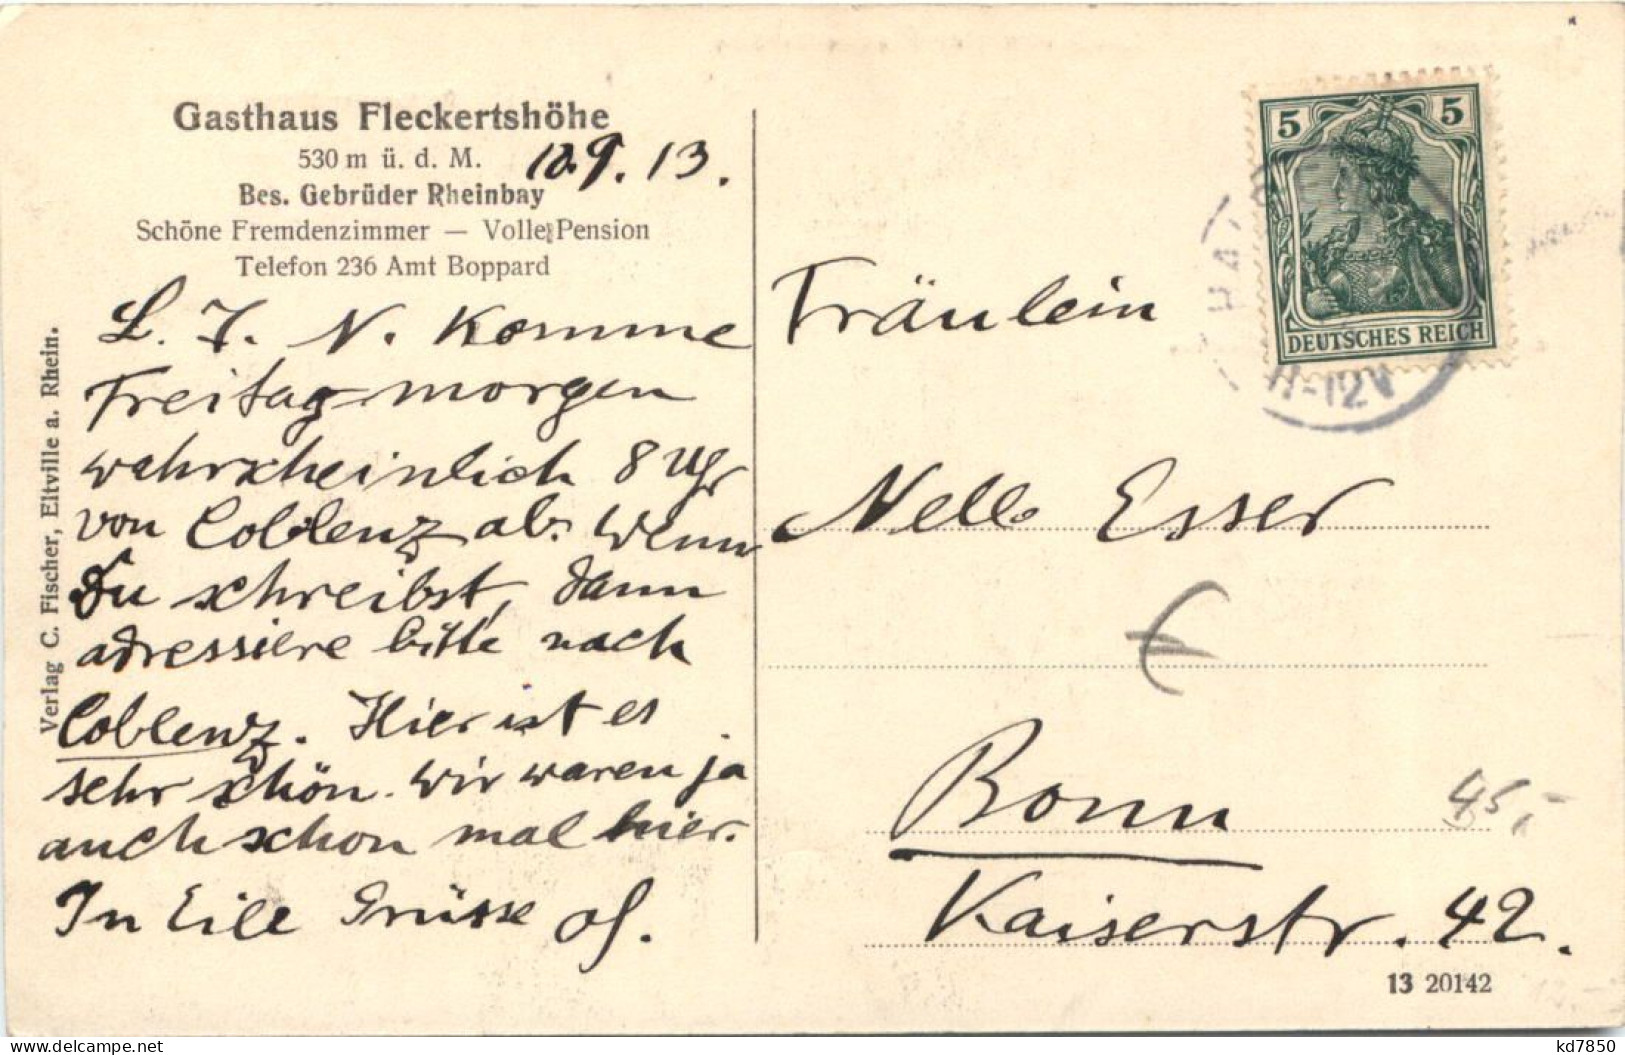 Gasthaus Fleckertshöhe
530 m ü. d. M.
10.9.13.
Bes. Gebrüder Rheinbay
Schöne Fremdenzimmer — Volle Pension
Telefon 236 Amt Boppard
L. J. N. Komme
Freitag morgen
wahrscheinlich 8 Uhr
von Coblenz ab. Wenn
Du schreibst, dann
adressiere bitte nach
Coblenz. Hier ist es
sehr schön. Wir waren ja
auch schon mal hier.
In Eile Grüsse
Verlag C. Fischer, Eltville a. Rhein.
5 5
DEUTSCHES REICH
11-12V
Fräulein
Nelly Esser
Bonn
Kaiserstr. 42.
45,-
13 20142
www.delcampe.net
kd7850